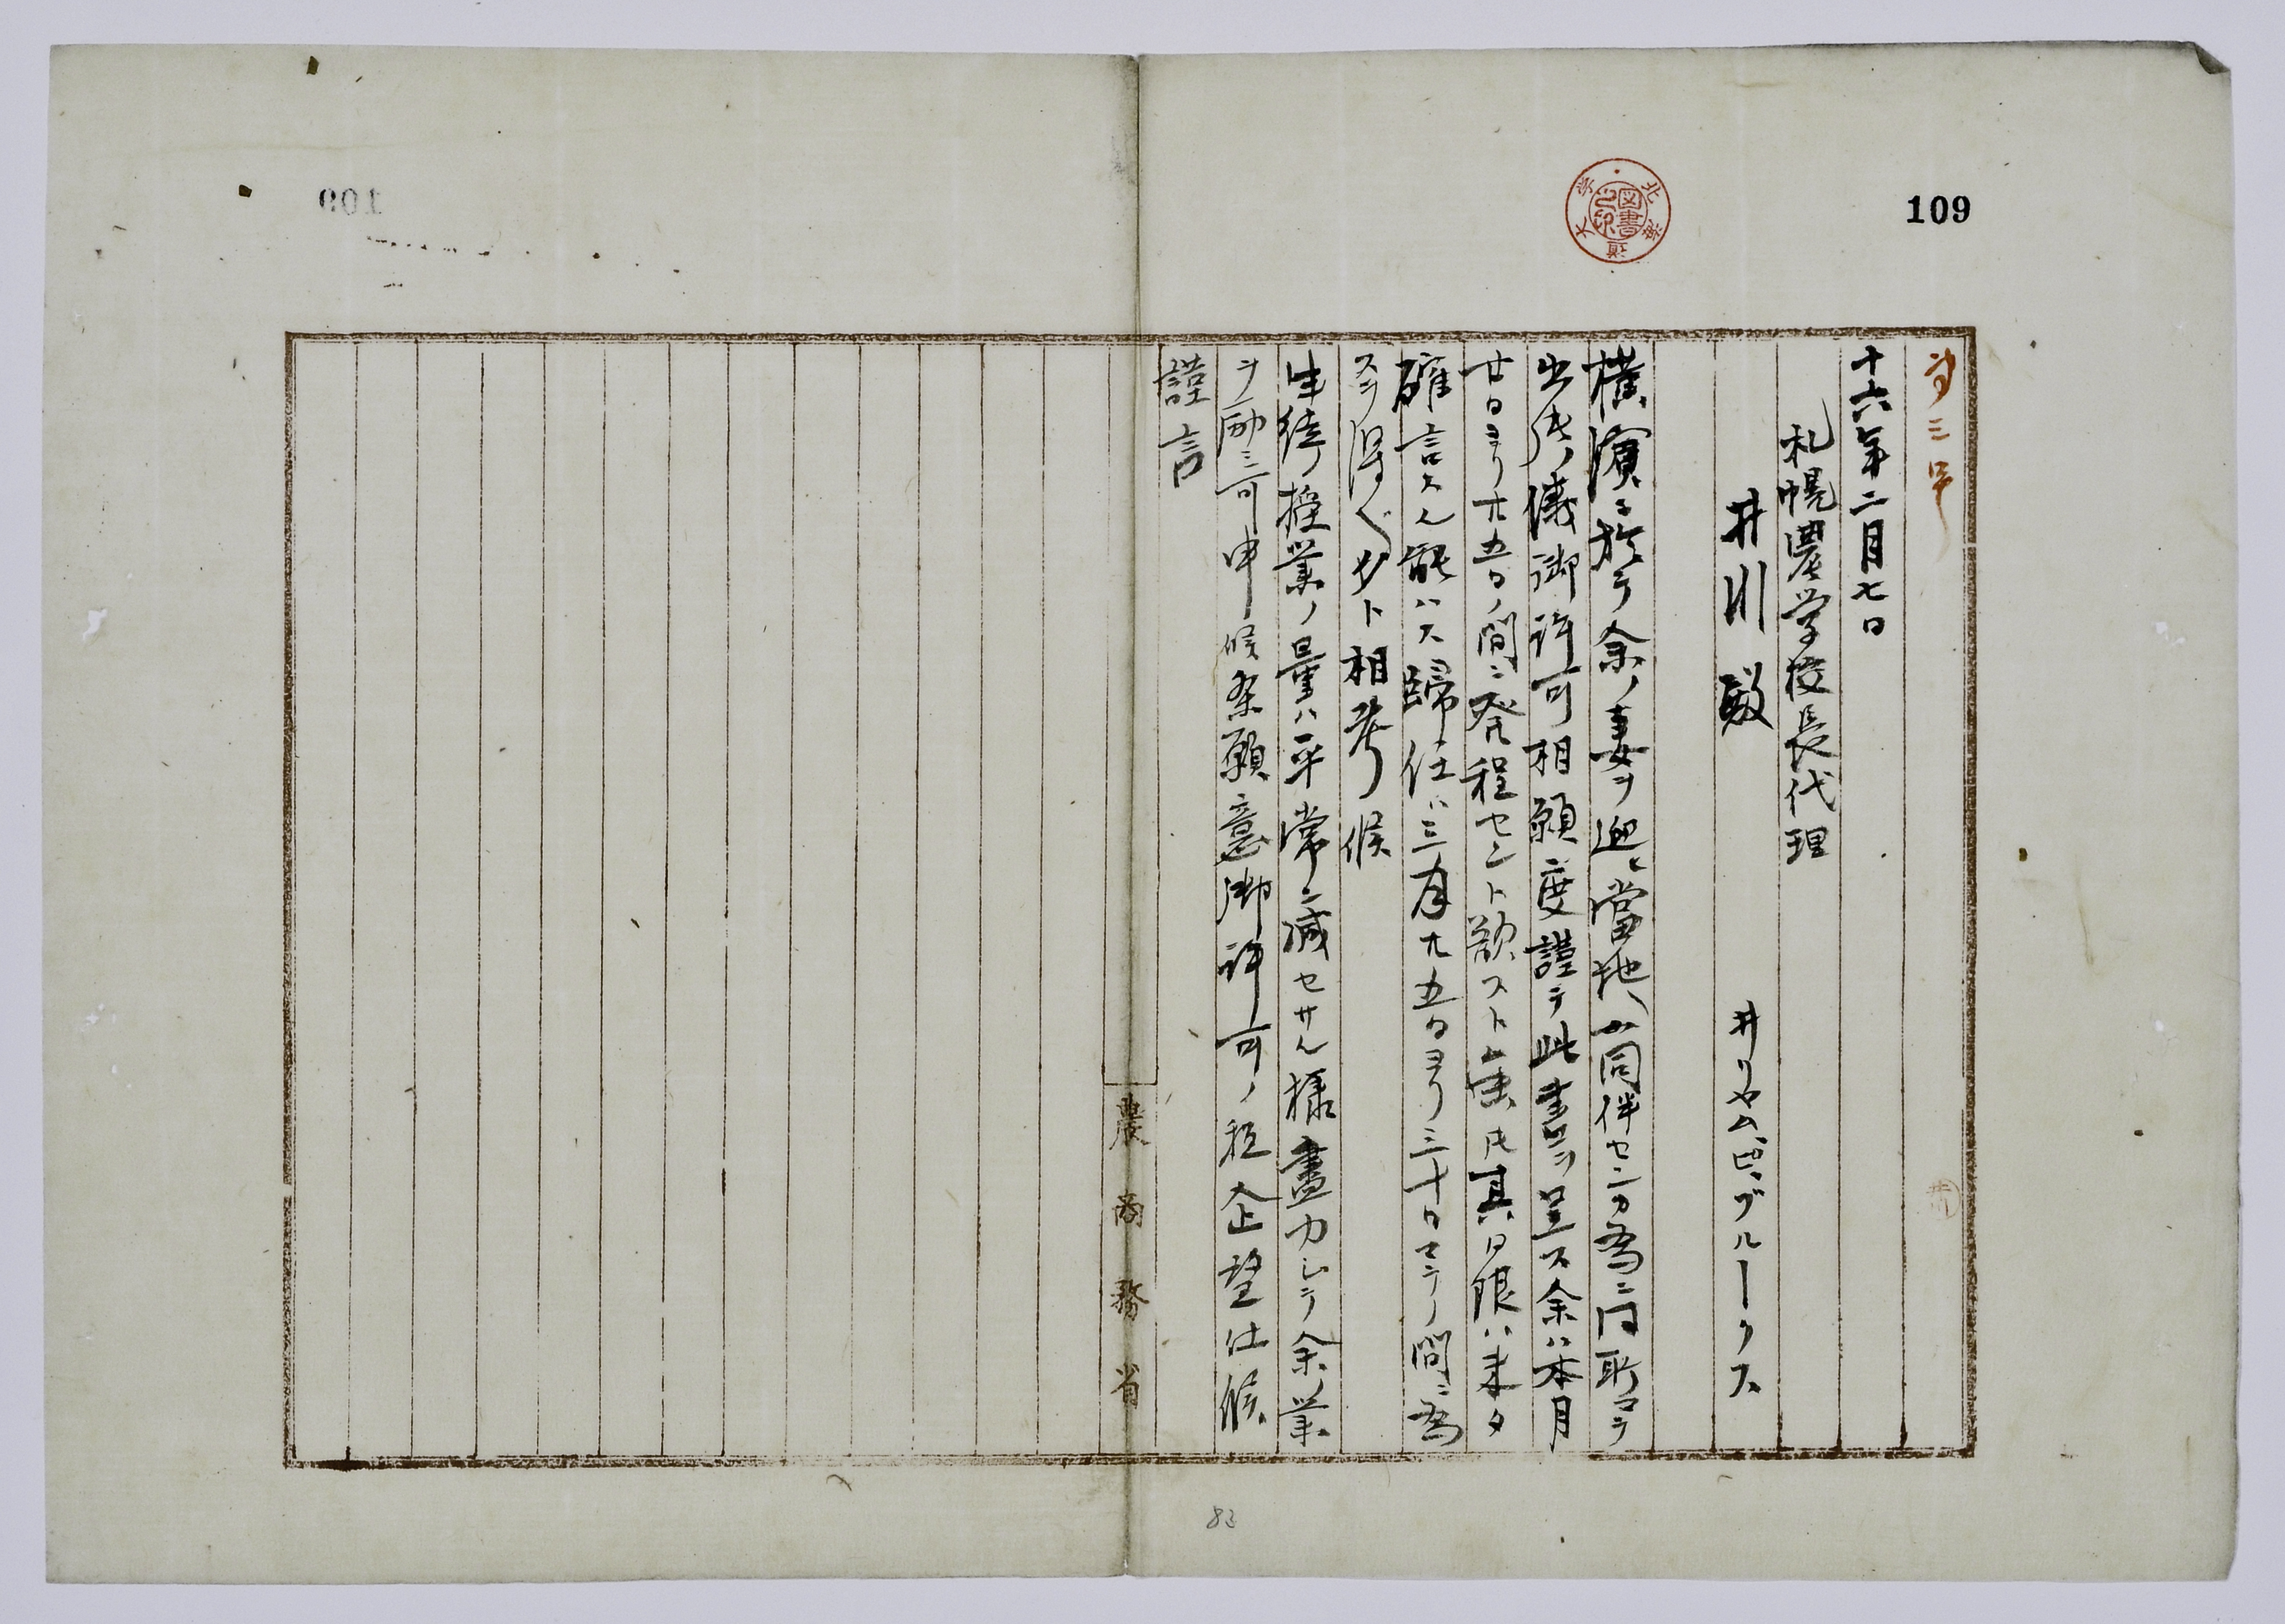 109
北海道大学
図書之印
第三号
十六年二月七日
札幌農学校長代理
井川殿
井リヤム、ピ、ブルークス
横濱ニ於テ余ノ妻ヲ迎ヒ當地ヘ同伴センカ為ニ同所マテ
出張ノ儀御許可相願度謹テ此書ヲ呈ス余ハ本月
廿日ヨリ廿五日ノ間ニ発程セント欲スト虽圧其日限ハ未タ
確言スル能ハス歸任ハ三月廿五日ヨリ三十日マテノ間ニ為
シ得ヘクヤト相考候
生徒授業ノ量ハ平常ニ減セサル様盡力シテ余ノ業
ヲ励ミ可申候条願意御許可ノ程企望仕候
謹言
農商務省
83